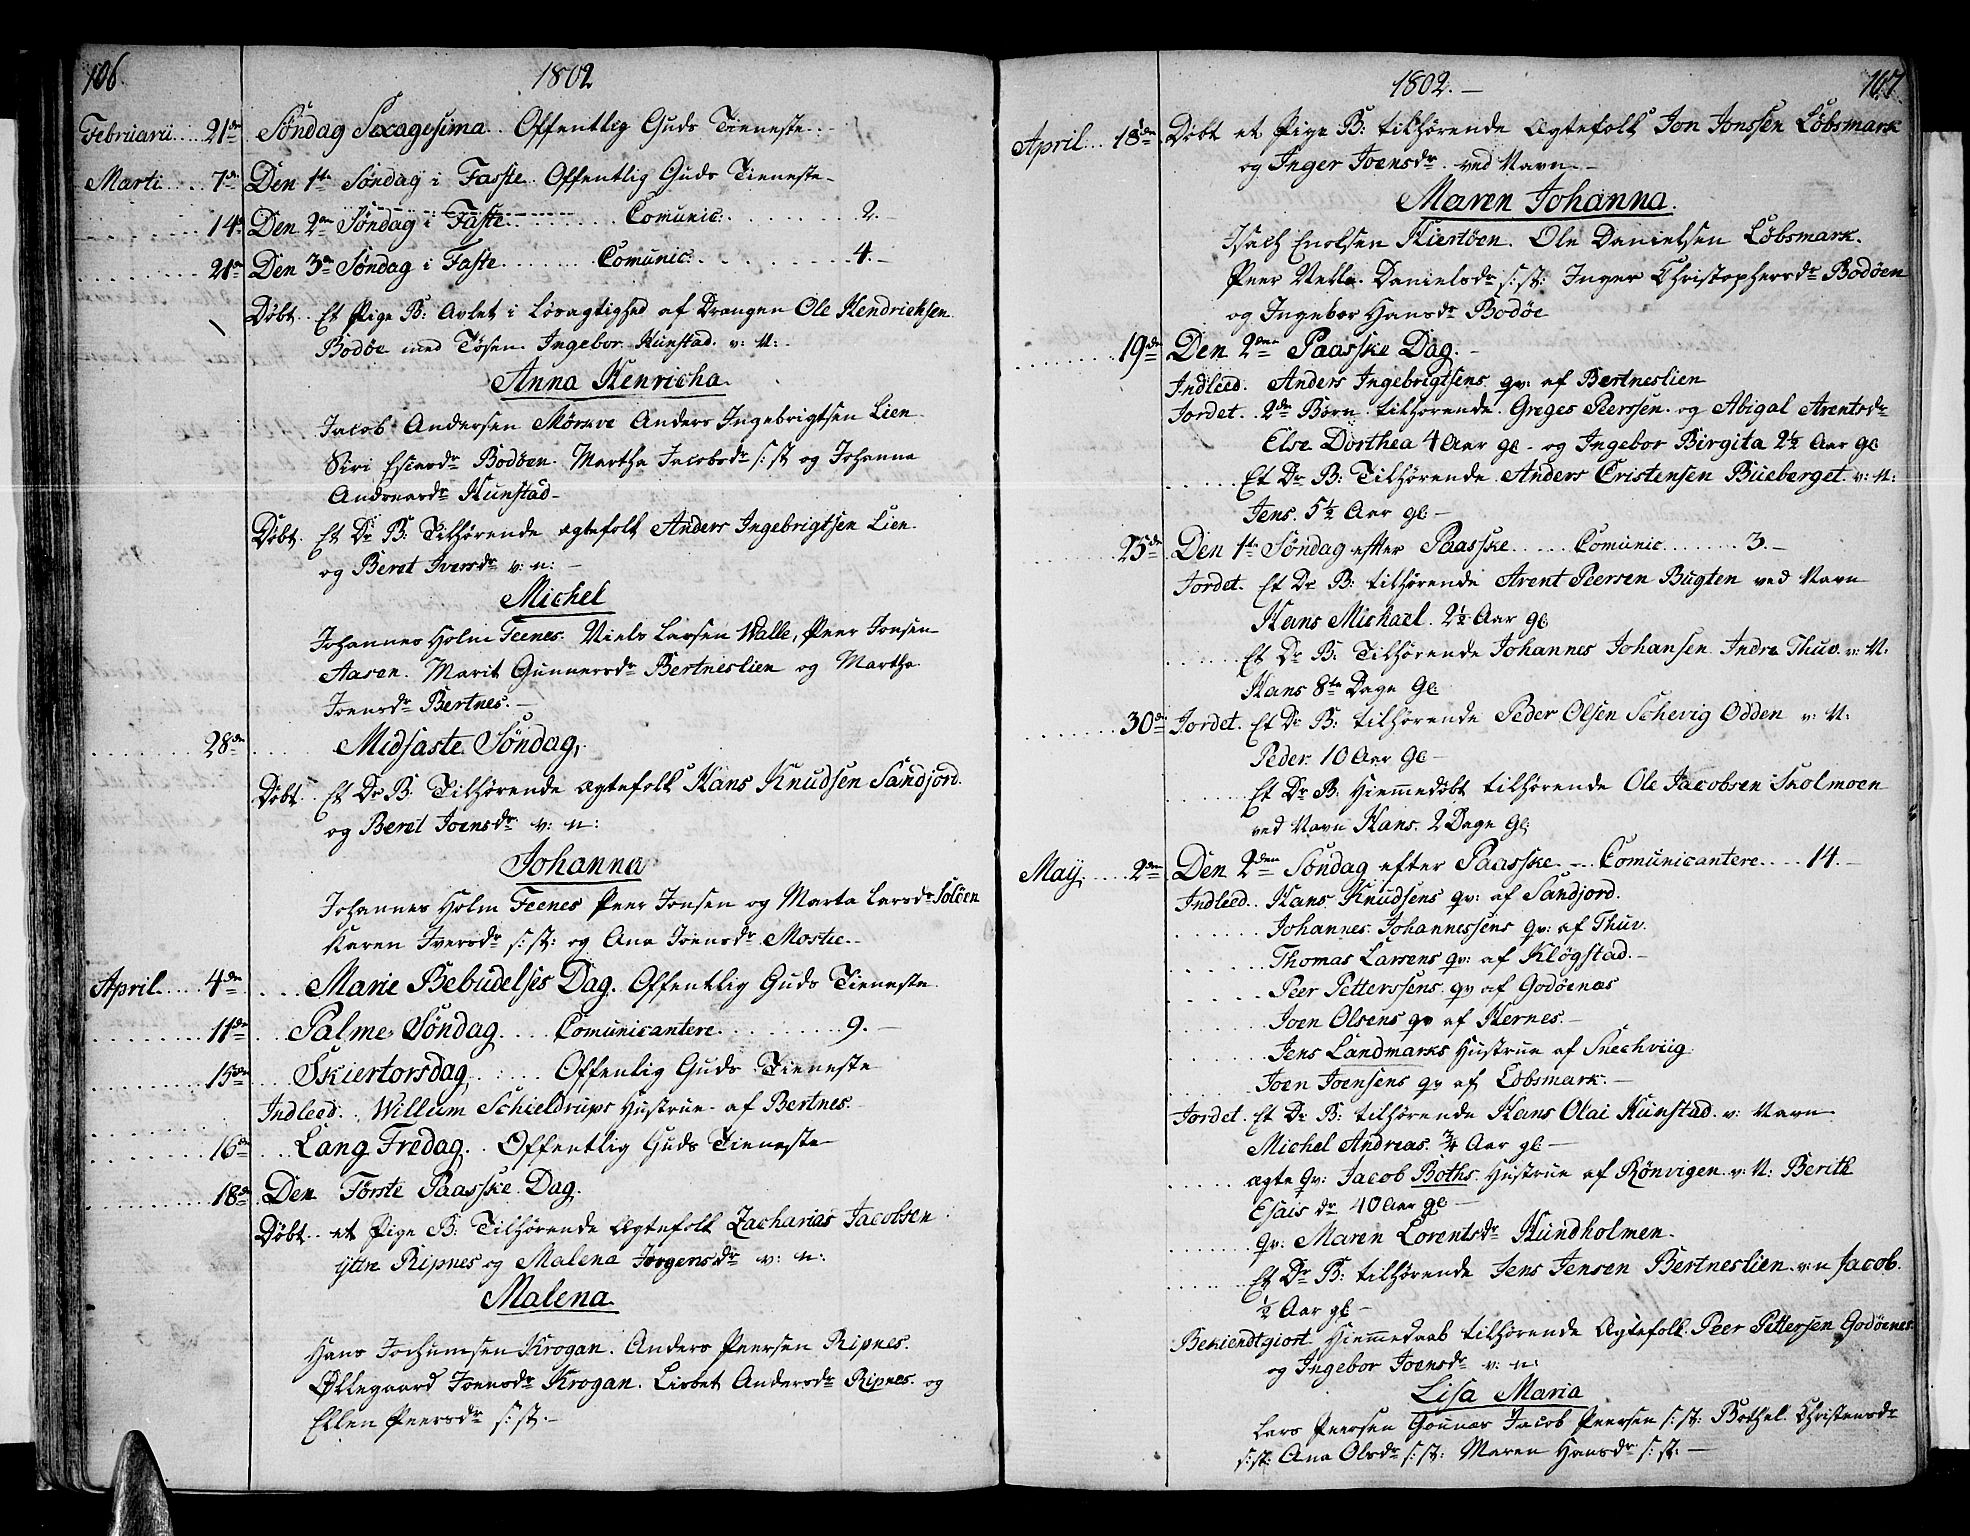 106.
1802
Februarii 21de Søndag Sexagesima. Offentlig Guds Tieneste.
Marti 7de Den 1te Søndag i Faste. Offentlig Guds Tieneste
14de Den 2den Søndag i Faste. Comunic: 2.
21de Den 3de Søndag i Faste Comunic: 4.
Døbt. Et Pige B: Avlet i Løsagtighed af Drengen Ole Hendrichsen
Bodøe med Tøsen Ingebor Hunstad. v: N:
Anna Henricha.
Jacob Andersen Mørkve Anders Ingebrigtsen Lien
Siri Esiasdr Bodøen. Martha Jacobsdr s: st og Johanna
Andreasdr Hunstad
Døbt. Et Dr B: Tilhørende ægtefolk Anders Ingebrigtsen Lien
og Beret Iversdr v: n:
Michel
Johannes Holm Feenes. Niels Larsen Walle, Peer Jonsen
Aasen. Marit Gunnersdr Bertneslien og Martha
Joensdr Bertnes.
28de Midfaste Søndag,
Døbt. Et Dr B. Tilhørende ægtefolk Hans Knudsen Sandjord
og Beret Joensdr v: n:
Johanna
Johannes Holm Feenes Peer Jonsen og Marta Larsdr Soløen
Karen Iversdr s: st: og Ana Joensdr
April 4de Marie Bebudelses Dag. Offentlig Guds Tieneste
11de Palme Søndag. Comunicantere. 9.
15de Skiertorsdag Offenlig Guds Tieneste
Indleed. Willum Schieldrups Hustrue af Bertnes.
16de Lang Fredag. Offentlig Guds Tieneste
18de Den Første Paasske Dag.
Døbt. et Pige B: Tilhørende Ægtefolk Zacharias Jacobsen
ytre Ripnes og Malena Jørgensdr v: n:
Malena.
Hans Jochumsen Krogan. Anders Peersen Ripnes.
Øllegaard Joensdr Krogan. Lisbet Andersdr Ripnes. og
Ellen Peersdr s: st:
1802.
107
April 18de Døbt et Pige B: tilhørende Ægtefolk Jon Jonssen Løbsmark
og Inger Joensdr ved Navn
Maren Johanna.
Isach Enolsen Kiertøen. Ole Danielsen Løbsmark.
Peer Danielsdr s: st: Inger Christophersdr Bodøen
og Ingebor Hansdr Bodøe
19de Den 2den Paasske Dag.
Indleed. Anders Ingebrigtsens qv: af Bertneslien
Jordet. 2de Børn tilhørende. Greges Peerssen. og Abigal Arentsdr
Else Dorthea 4 Aar gl og Ingebor Birgita 2½ Aar gl
Et Dr B: Tilhørende Anders Cristensen Bueberget v: n:
Jens. 5½ Aar gl
25de Den 1te Søndag efter Paasske Comunic 3.
Jordet. Et Dr B: tilhørende Arent Peersen Bugten ved Navn
Hans Michael. 2½ Aar gl
Et Dr B: Tilhørende Johannes Johansen Indre Thuv. v: N:
Hans 8te Dage Gl:
30de Jordet. Et Dr B: tilhørende Peder Olsen Schevig Odden v: N:
Peder. 10 Aar Gl
Et Dr B: Hiemmedøbt tilhørende Ole Jacobsen Skolmoen
ved Navn Hans. 2 Dage Gl:
May 2den Den 2den Søndag efter Paasske. Comunicantere 14.
Indleed. Hans Knudsens qv: af Sandjord.
Johannes Johannessens qv: af Thuv.
Thomas Larsens qv: af Kløgstad.
Peer Petterssens qv af Godøenæs
Joen Olsens qv af Hernes.
Jens Landmarks Hustrue af Snechviig
Joen Joensens qv af Løbsmark.
Jordet. Et Dr B: tilhørende Hans Olai Hunstad v: Navn
Michel Andreas. ¾ Aar gl
ægte qv: Jacob Boths Hustrue af Rønvigen v: N: Berith
Esais dr 40 Aar gl
qv: Maren Lorentsdr Hundholmen.
Et Dr B: tilhørende Jens Jensen Bertneslien v: n Jacob.
½ Aar gl
Bekiendtgiort Hiemmedaab tilhørende Ægtefolk Peer Pettersen Godøenes
og Ingebor Joensdr v: n:
Lisa Maria
Lars Peersen Jacob Peersen s: st: Bothel Christensdr
s: st: Ana Olsdr s: st: Maren Hansdr s: st: